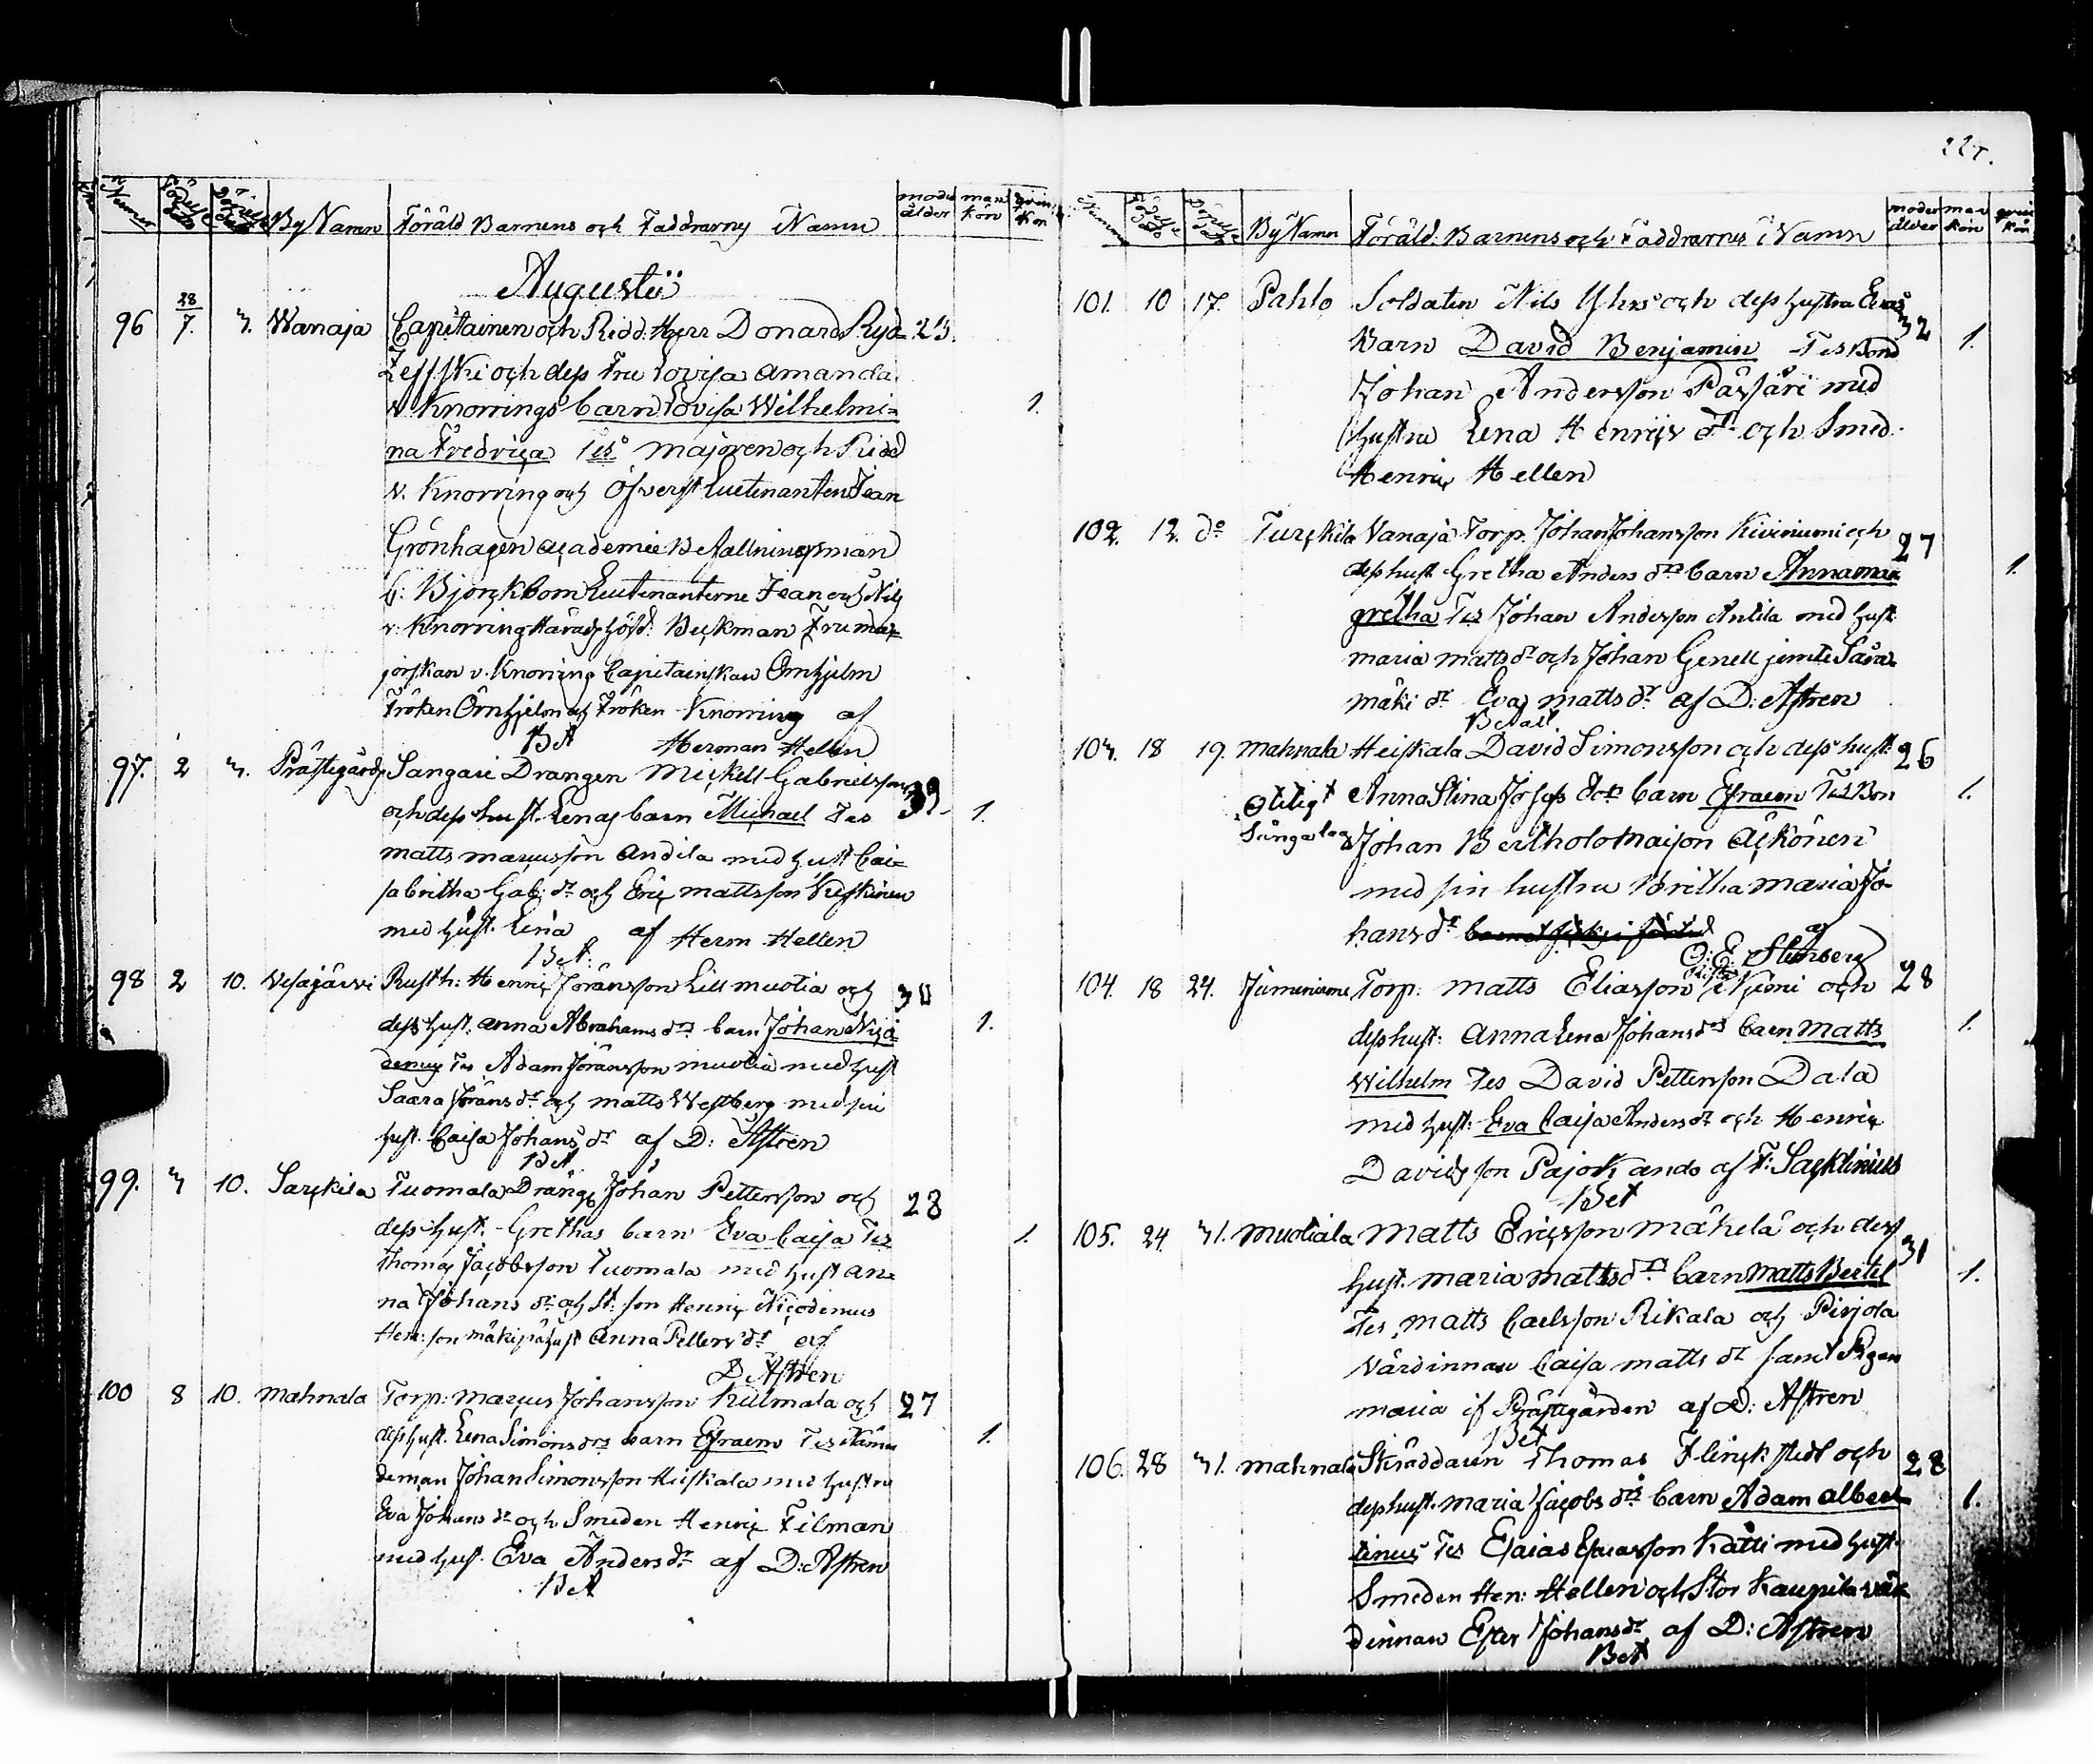 227.
Numer Födelse dato Döpelse dato By Namn Föräld Barnens och Faddrarnes Namn moder ålder man kön qvin kön
Augustii
96 28/7. 3. Wanaja Capitainen och Ridd: Herr Donard Ryd= 23.
zeffski och dess Fru Lovisa Amanda
v. Knorrings barn Lovisa Wilhelmi= 1.
na Fredrica Tes majoren och Ridd
v. Knorring och Öfverst Lieutenanten Jean
Grönhagen academie Befallningsman
C: Bjorckbom Lieutenanterne Jean och Nils
v. Knorring Häradshöfd: Beckman Fru ma=
jorskan v. Knorring Capitainskan Örnhjelm
Fröken Örnhjelm och Fröken Knorring af
Bet Herman Hellen
97. 2 3. Prästegårds Sangari Drängen Mickell Gabrielsson 39.
och dess hust. Lenas barn Michael Tes 1.
matts marcusson Andila med hust Cai=
sa britha Gab: dr och Eric mattsson Keskinen
med hust. Lena af Herm Hellen
Bet.
98 2 10. Vesajärvi Rusth: Henric Jöransson Lill muotia och 30
dess hust. anna Abrahams drs barn Johan Nico= 1.
demus Tes Adam Jöransson muotia med hust
Saara Jörans dr och matts Westberg med sin
hust. Caisa Johans dr af D: Astren
Bet
99. 3 10. Sarckila Tuomala Dräng Johan Pettersson och 28
dess hust. Grethas barn Eva Caisa Tes 1.
Thomas Jacobsson Tuomala med hust an=
na Johans dr och St: son Henric Nicodemus
Hen: son mäkipä hust Anna Petters dr af
D Astren
100 8 10. mahnala Torp: marcus Johansson Kulmala och 27
dess hust. Lena Simons drs barn Efraem Tes Näm= 1.
deman Johan Simonsson Heiskala med hustru
Eva Johans dr och Smeden Henric Filman
med hust. Eva Anders dr af D: Astren
Bet
Numer Födelse dato Döpelse dato By Namn Föräld: Barnens och Faddrarnes Namn moder ålder man kön qvin kön
101. 10 17. Pahlo Soldaten Nils Yhrs och dess hustru Evas 32
barn David Benjamin Tes Bond 1.
Johan Andersson Pässäri med
hustru Lena Henrics dr och Smed.
Henric Hellen
102. 12. do Turckila Vanaja Torp. Johan Johansson Kiviniemi och 27
dess hust Gretha Anders drs barn Anna mar= 1.
gretha Tes Johan Andersson Antila med hust
maria matts dr och Johan Genell jemte Saara
mäki dr Eva matts dr af D: Astren
Betalt
103. 18 19. mahnala Heiskala David Simonsson och dess hust. 26
Anna Stina Josefs drs barn Efraem Tes Bon 1.
Johan Bertholomaison Ackönen
med sin hustru Britha maria Jo=
hans dr af
O: E. Stenberg
104. 18 24. Jumeniemi Torp: matts Eliasson Niemi och 28
dess hust: anna Lena Johans drs barn Matts 1.
Wilhelm Tes David Pettersson Dala
med hust: Eva Caisa Anders dr och Henric
Davidsson Pajokando af F: Sacklinius
Bet
105. 24. 31. muotiala matts Ericsson mäkelä och dess 31
hust. maria matts drs barn Matts Bertel 1.
Tes matts Carlsson Rikala och Pirjola
värdinnan Caisa matts dr samt Pigan
maria if Prästgården af D: Astren
Bet
106. 28 31. mahnala Skräddaren Thomas Flinckstedt och 28
dess hust. maria Jacobs drs barn Adam albert 1.
tinus Tes Esaias Esaiasson Kätti med hust.
Smeden Hen: Hellen och Stor Kaupila vär
dinnan Ester Johans dr af D: Astren
Bet